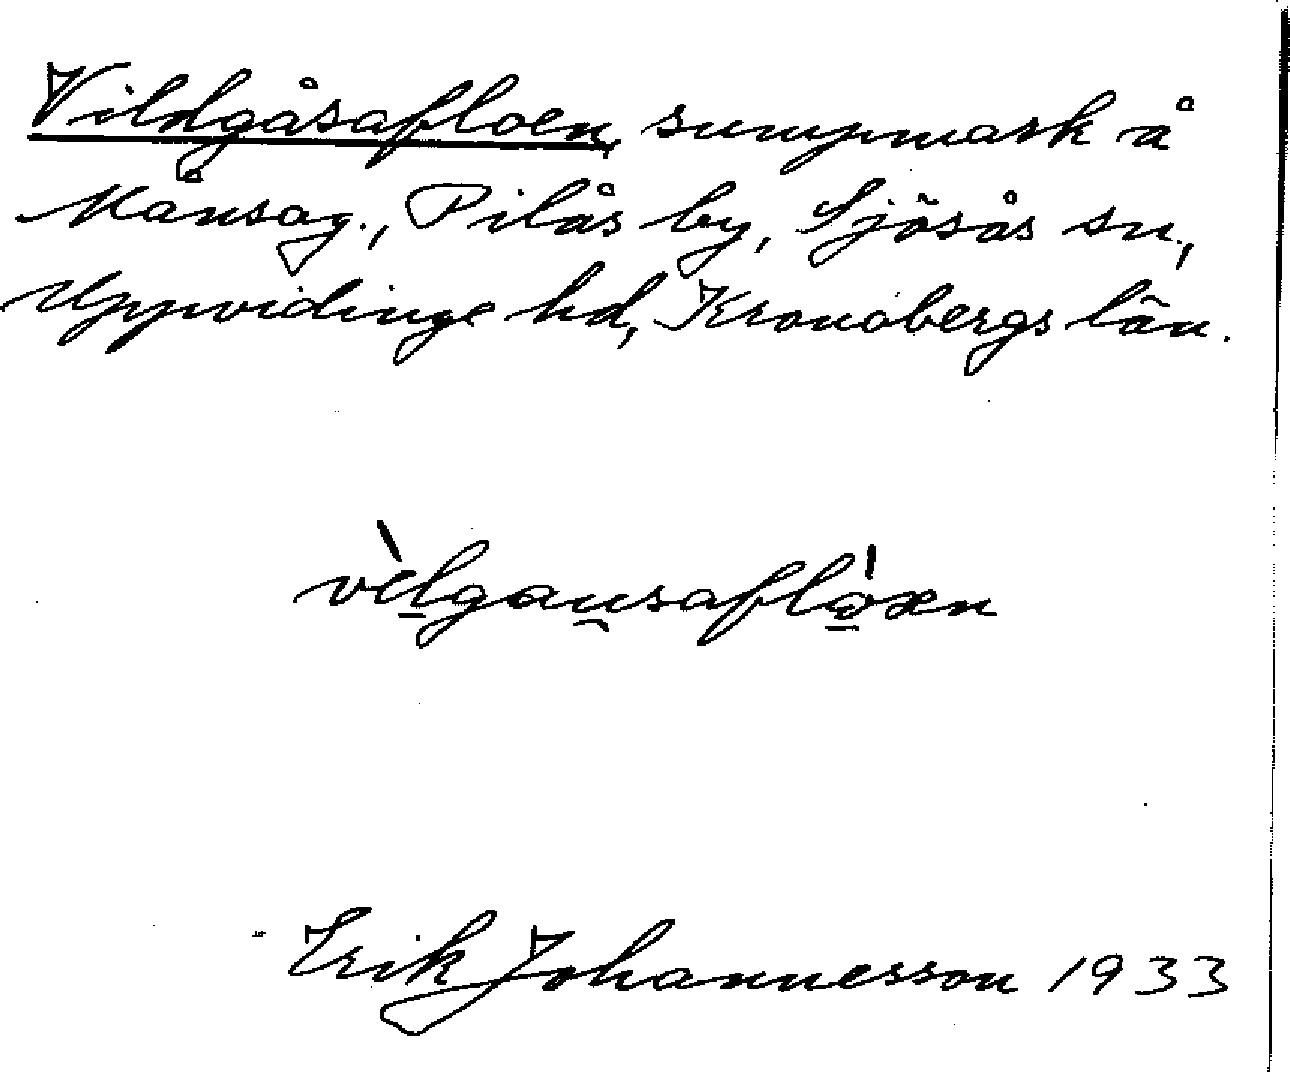 Vildgåsafloen, sumpmark å
Månsag., Pilås by, Sjösås sn,
Uppvidinge hd, Kronobergs län.
vèlgausaflo̱'æn
Erik Johannesson 1933